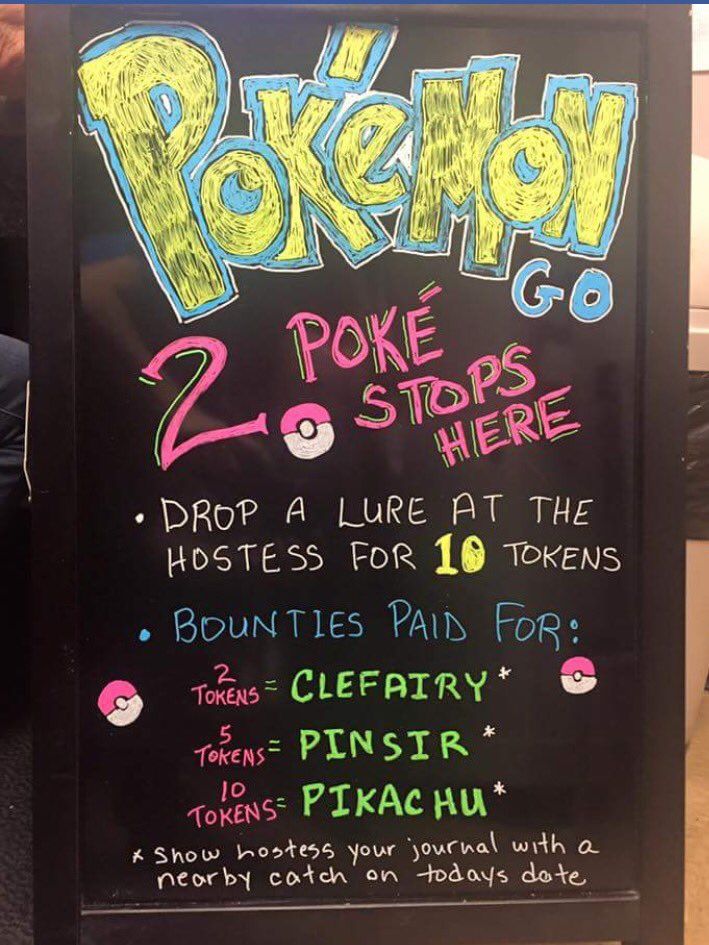 POKéMON
GO
2 POKÉ
STOPS
HERE
• DROP A LURE AT THE
HOSTESS FOR 10 TOKENS
• BOUNTIES PAID FOR:
2 TOKENS = CLEFAIRY *
5 TOKENS = PINSIR *
10 TOKENS = PIKACHU *
* Show hostess your journal with a
nearby catch on todays date